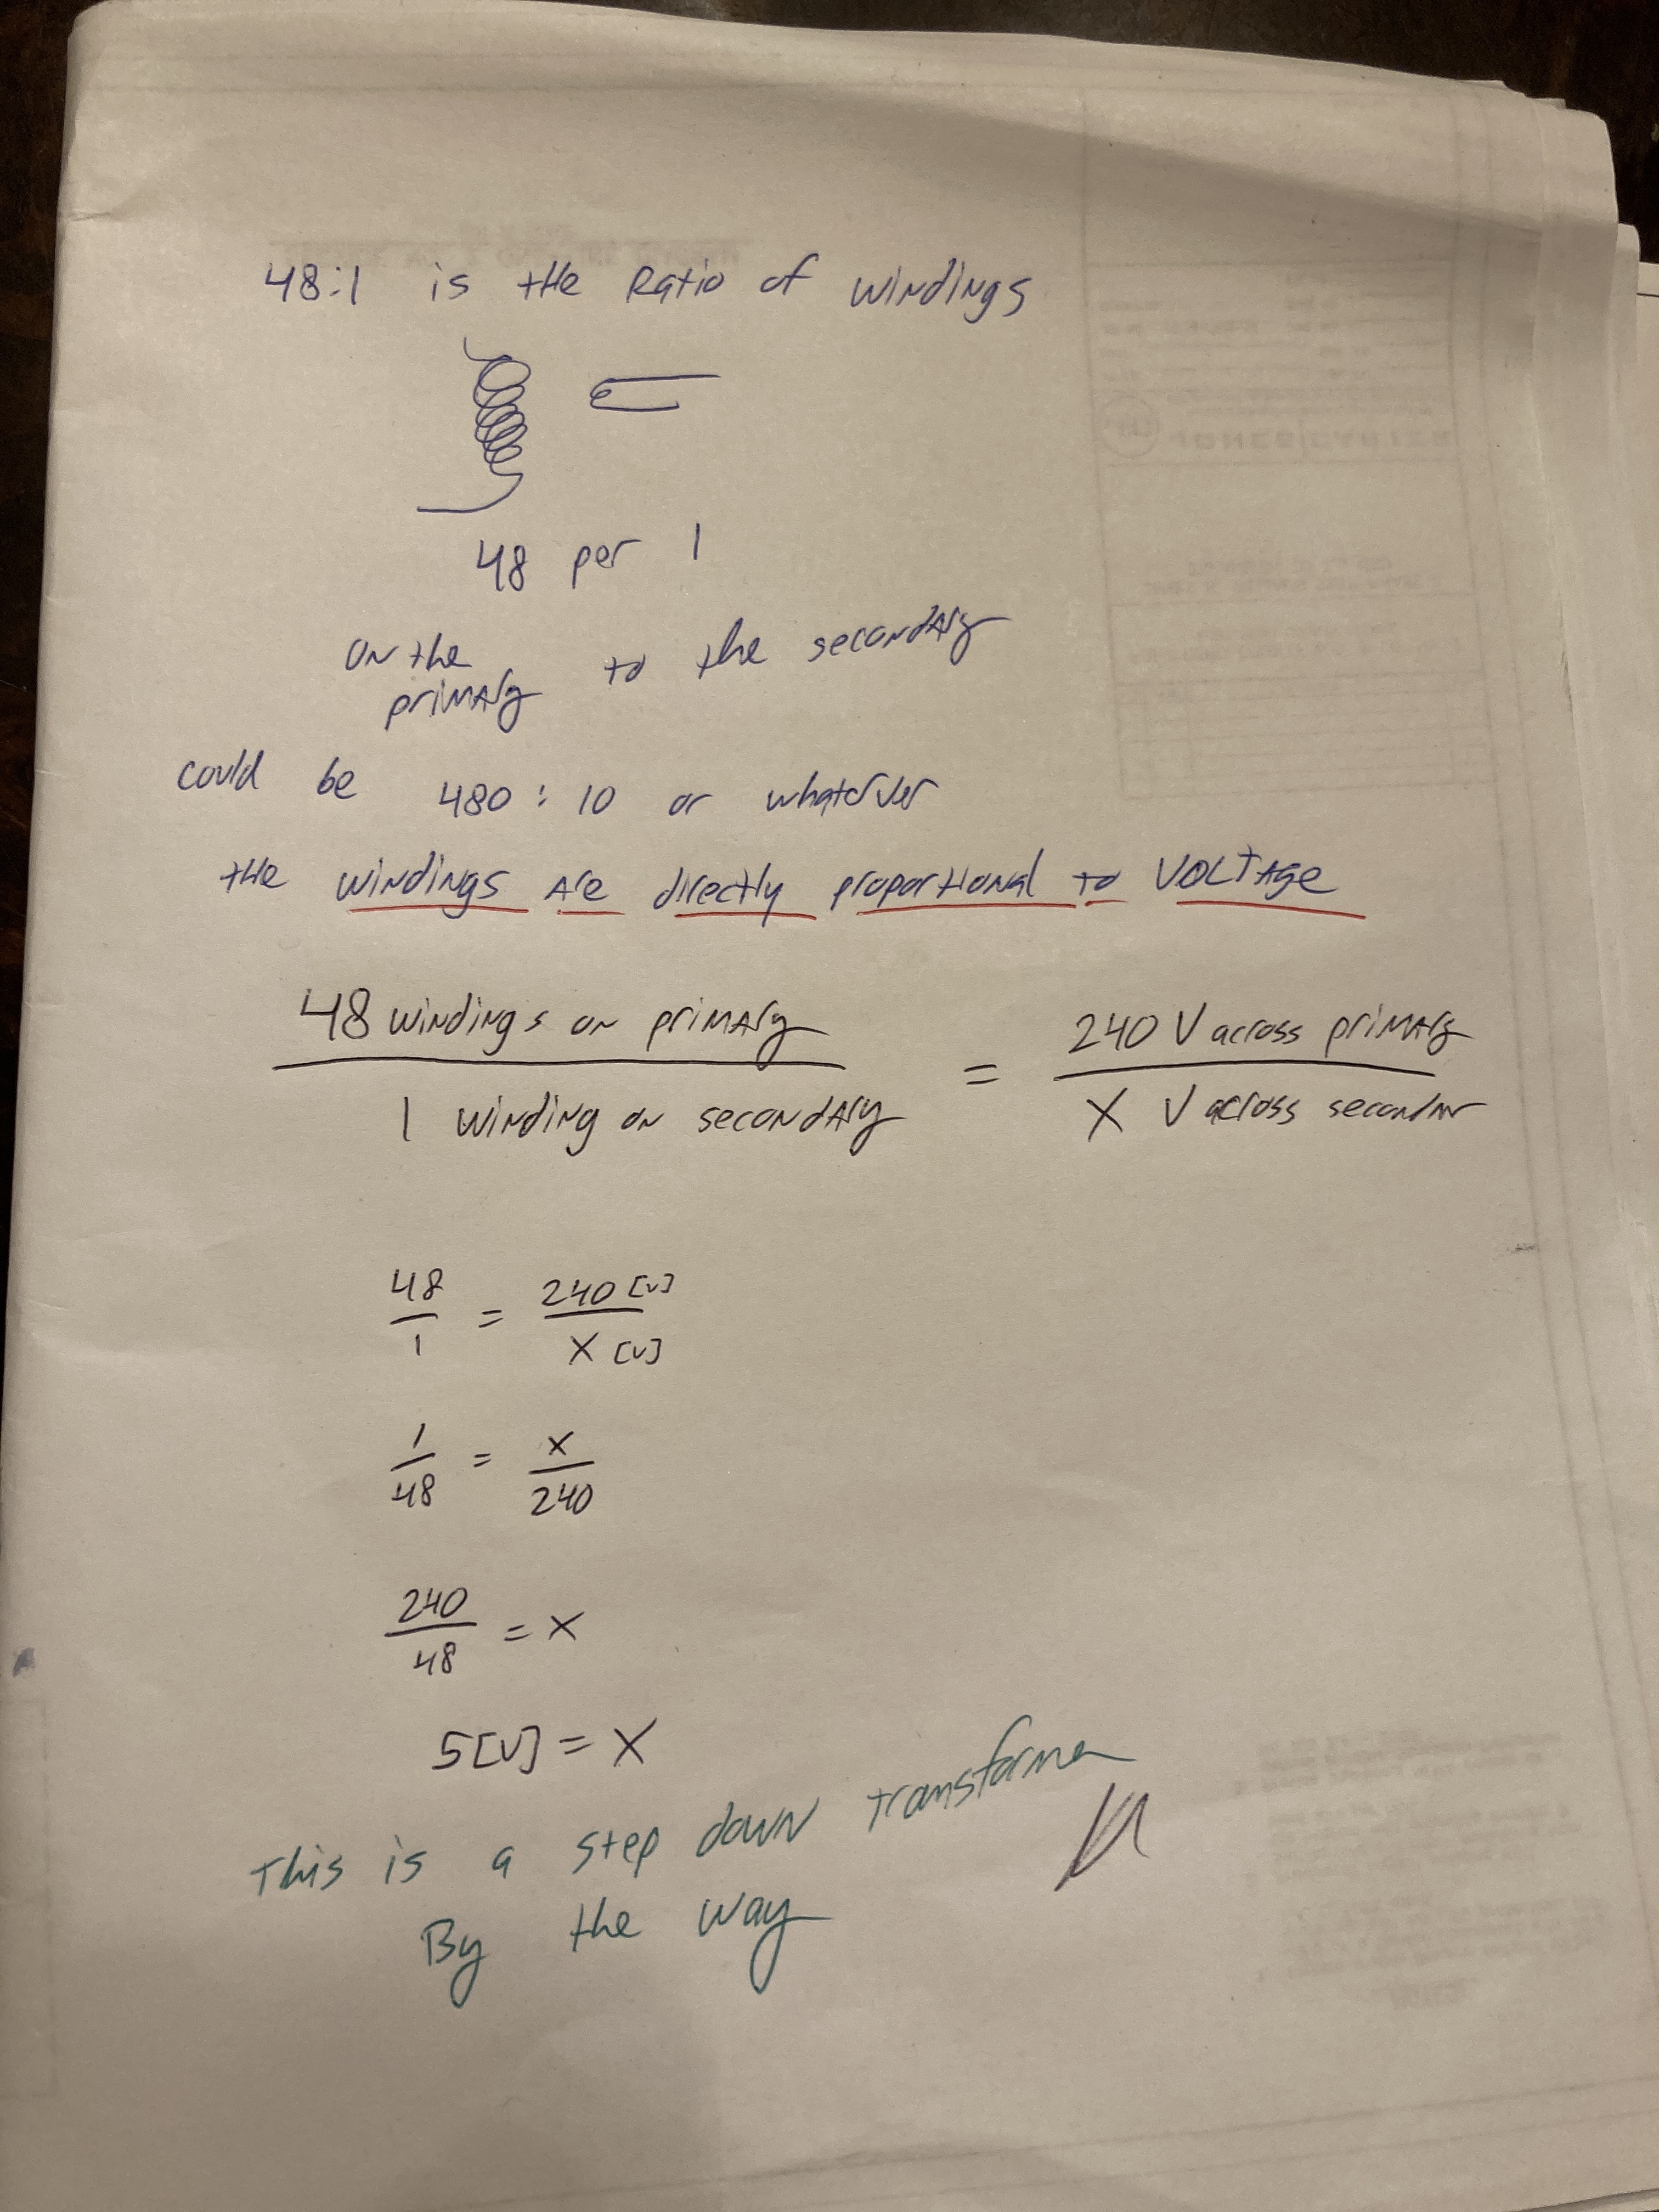 48:1 is the Ratio of windings
48 per 1
on the primary to the secondary
could be 480:10 or whatever
the windings are directly proportional to VOLTAGE
48 windings on primary = 240 V across primary
1 winding on secondary X V across
48 = 240 [V]
1 X [V]
1 = X
48 240
240 = X
48
5[V] = X
This is a step down transformer
By the way
JONES|CARTER